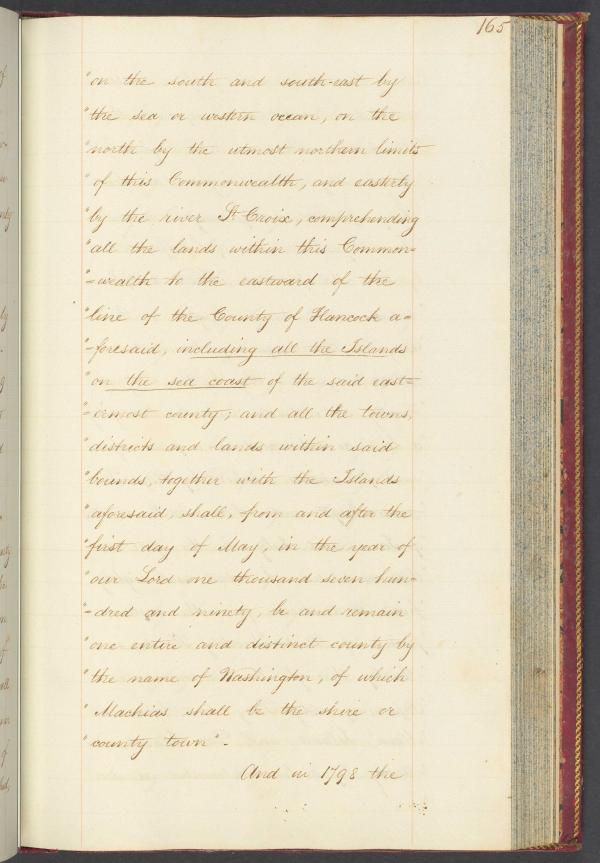 165
"on the south and south-east by
"the sea or western ocean, on the
"north by the utmost northern limits
"of this Commonwealth, and easterly
"by the river St Croix, comprehending
"all the lands within this Common=
"=wealth to the eastward of the
"line of the County of Hancock a=
"=foresaid, including all the Islands
"on the sea coast of the said east=
"=ermost county; and all the towns,
"districts and lands within said
"bounds, together with the Islands
"aforesaid, shall, from and after the
"first day of May, in the year of
"our Lord one thousand seven hun=
"=dred and ninety, be and remain
"one entire and distinct county by
"the name of Washington, of which
"Machias shall be the shire or
"county town".
And in 1798 the